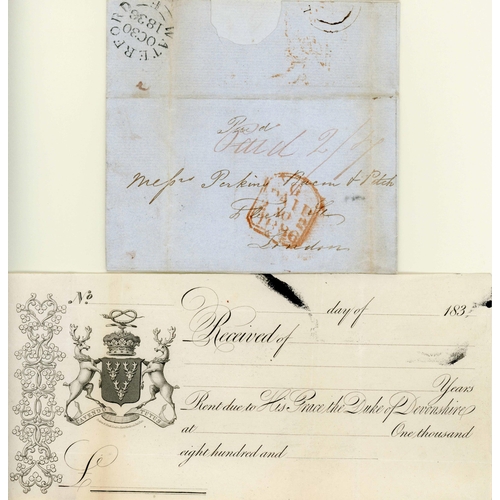 WATERFORD
OC 30
1838
Paid
Paid 2/7
Messrs Perkins Bacon & Petch
Fleet St
London
PAID
30 OC
1838
No
day of 183
Received of
Years
Rent due to His Grace the Duke of Devonshire
at One thousand
eight hundred and
£